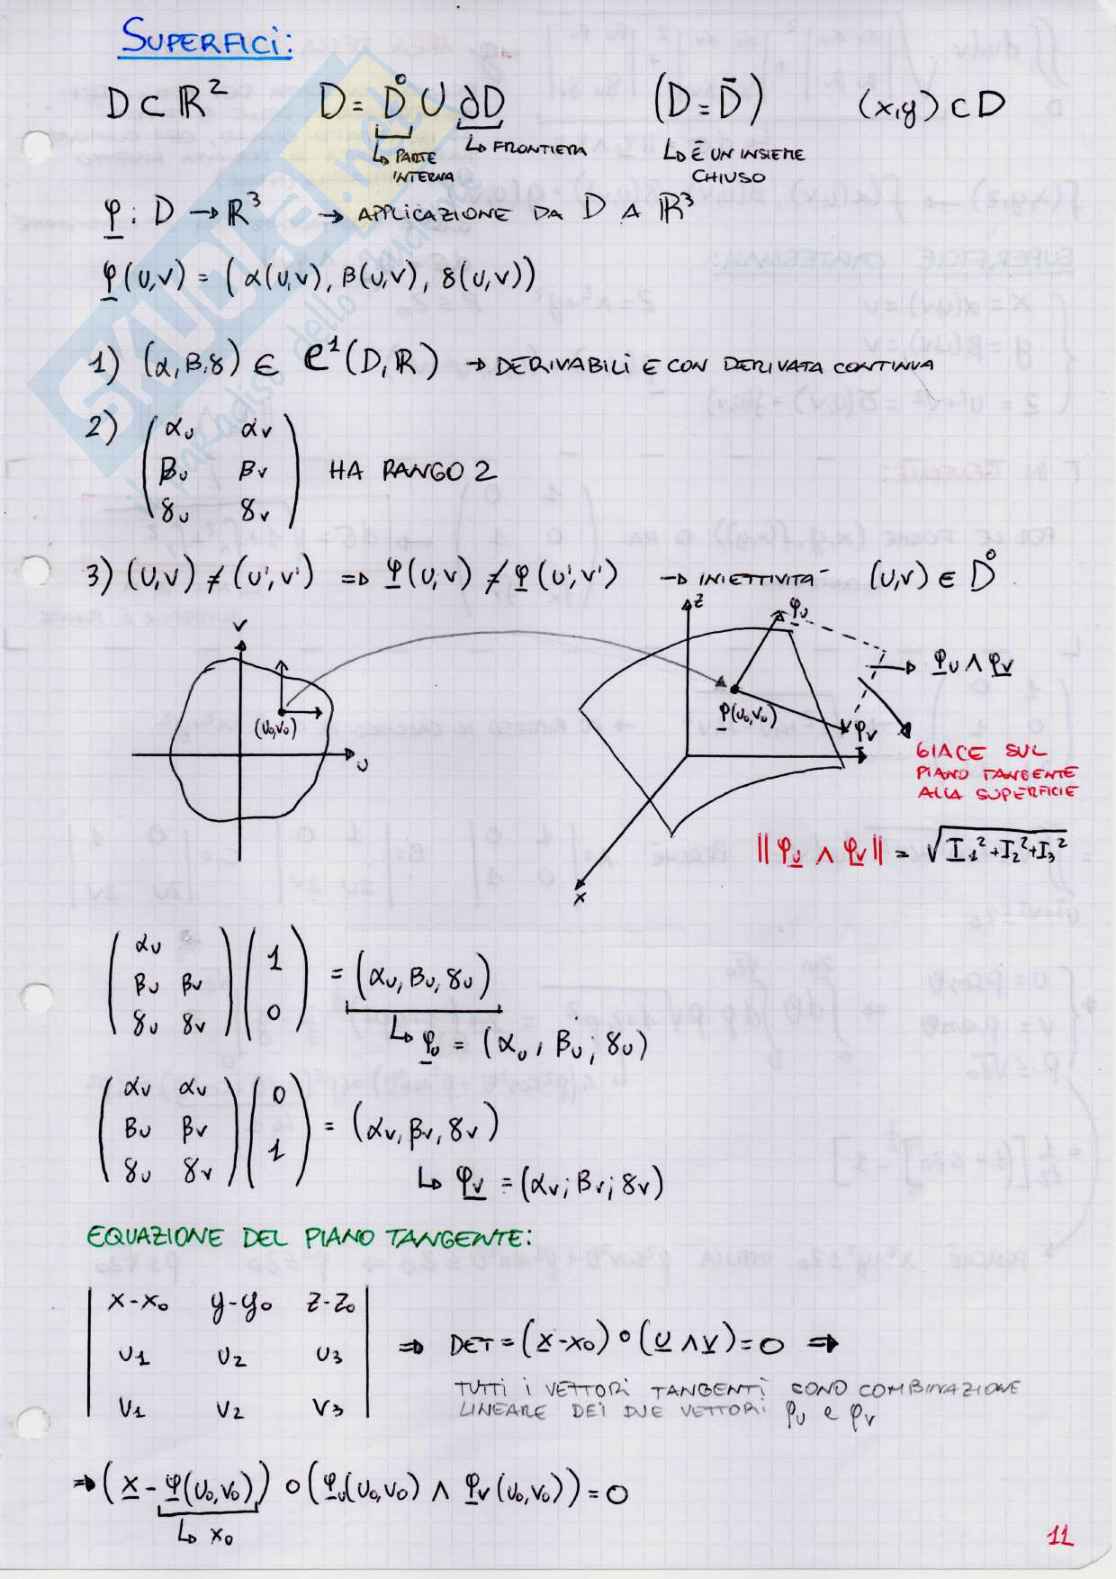 SUPERFICI:
D ⊂ ℝ² D = D° ∪ ∂D (D = D̄) (x,y) ⊂ D
↳ PARTE INTERNA ↳ FRONTIERA ↳ È UN INSIEME CHIUSO
φ : D → ℝ³ → APPLICAZIONE DA D A ℝ³
φ(u,v) = (α(u,v), β(u,v), γ(u,v))
1) (α,β,γ) ∈ C¹(D,ℝ) → DERIVABILI E CON DERIVATA CONTINUA
2) (αu αv
βu βv HA RANGO 2
γu γv)
3) (u,v) ≠ (u',v') ⇒ φ(u,v) ≠ φ(u',v') → INIETTIVITA' (u,v) ∈ D°
v
(u₀,v₀)
u
z
φu
φu ∧ φv
P(u₀,v₀)
φv
x
GIACE SUL
PIANO TANGENTE
ALLA SUPERFICIE
||φu ∧ φv|| = √I₁²+I₂²+I₃²
(αu
βu βv
γu γv) (1
0) = (αu, βu, γu)
↳ φu = (αu, βu; γu)
(αv αv
βu βv
γu γv) (0
1) = (αv, βv, γv)
↳ φv = (αv; βv; γv)
EQUAZIONE DEL PIANO TANGENTE:
|x-x₀ y-y₀ z-z₀|
|u1 u2 u3| ⇒ DET = (x-x₀) ∘ (u ∧ v) = 0 ⇒
|v1 v2 v3|
TUTTI I VETTORI TANGENTI SONO COMBINAZIONE
LINEARE DEI DUE VETTORI φu e φv
⇒ (x - φ(u₀,v₀)) ∘ (φu(u₀,v₀) ∧ φv(u₀,v₀)) = 0
↳ x₀
11